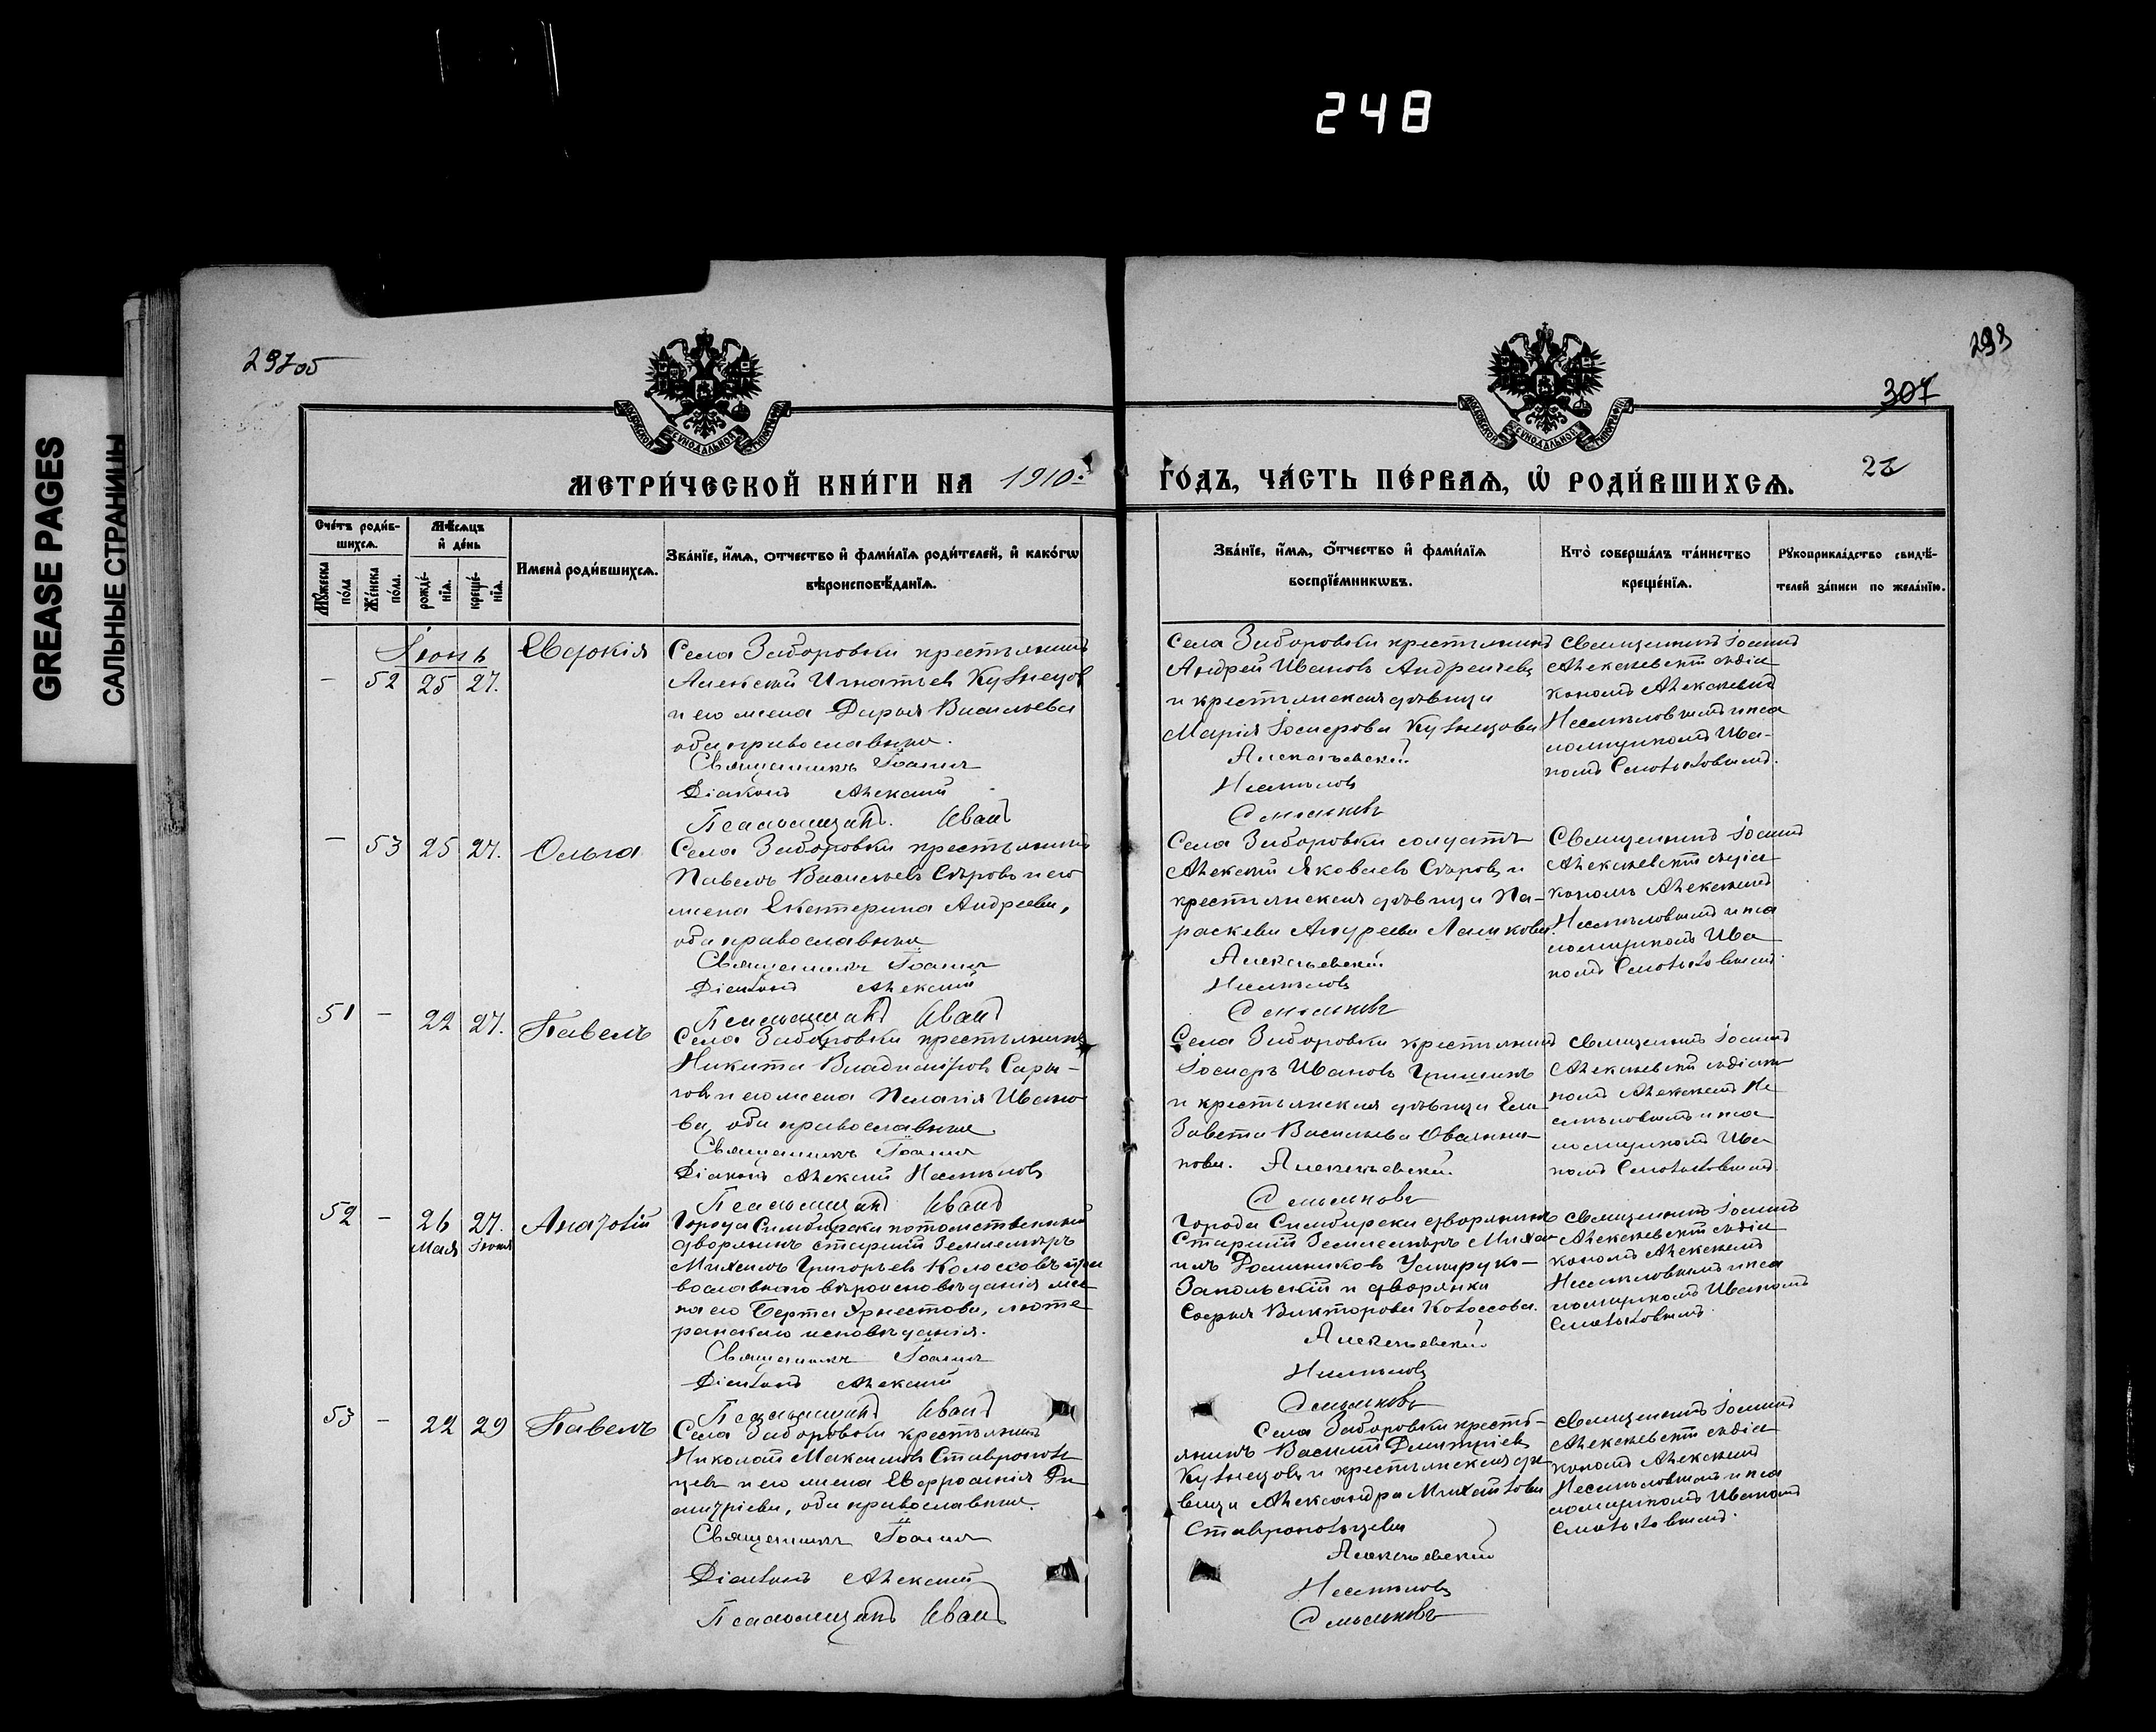 248
GREASE PAGES
САЛЬНЫЕ СТРАНИЦЫ
297об
298
307
МЕТРИ́ЧЕСКОЙ КНИ́ГИ НА 1910
ГО́ДЪ, ЧА́СТЬ ПЕ́РВАѦ, Ѡ҆ РОДИ́ВШИХСѦ.
Сче́тъ роди́в-
шихсѧ.
Мѣ́сѧцъ
и҆ де́нь
Мꙋ́жеска
по́ла
Же́нска
по́ла.
рожде́-
нїѧ.
креще́-
нїѧ.
Имена̀ роди́вшихсѧ.
Зва́нїе, и҆́мѧ, о҆́тчество и҆ фами́лїѧ роди́телей, и҆ како́гѡ
вѣроисповѣ́данїѧ.
Зва́нїе, и҆́мѧ, о҆́тчество и҆ фами́лїѧ
воспрїе́мникѡвъ.
Кто̀ соверша́лъ та́инство
креще́нїѧ.
Рꙋкоприкла́дство свидѣ́-
телей за́писи по жела́нїю.
Іюнь
– 52 25 27.
Евдокія
Села Заборовки крестьянинъ
Алексѣй Игнатьев Кузнецов
и его жена Дарья Васильева
оба православные.
Священникъ Іоаннъ
Діаконъ Алексий
Псаломщикъ Иванъ
Села Заборовки крестьянинъ
Андрей Иванов Андреичев
и крестьянская дѣвица
Марія Іосифова Кузнецова
Алексѣевскій
Несмѣлов
Смольковъ
Священникъ Іоаннъ
Алексѣевскій съ діа
кономъ Алексѣемъ
Несмѣловымъ и пса
ломщикомъ Ива-
номъ Смольковымъ.
– 53 25 27.
Ольга
Села Заборовки крестьянинъ
Павелъ Васильевъ Сѣровъ и его
жена Екатерина Андреева,
оба православные
Священникъ Іоаннъ
Діаконъ Алексий
Псаломщикъ Иванъ
Села Заборовки солдатъ
Алексѣй Яковлев Сѣров и
крестьянская дѣвица Па-
раскева Андреева Лашкова.
Алексѣевскій
Несмѣлов
Смольковъ
Священникъ Іоаннъ
Алексѣевскій съ діа
кономъ Алексѣемъ
Несмѣловымъ и пса
ломщикомъ Ива
номъ Смольковымъ.
51 – 22 27.
Павелъ
Села Заборовки крестьянинъ
Никита Владиміров Сары-
гов и его жена Пелагія Ивано
ва, оба православные
Священникъ Іоаннъ
Діаконъ Алексий Несмѣлов
Псаломщикъ Иванъ
Села Заборовки крестьянинъ
Іосифъ Иванов Гришинъ
и крестьянская дѣвица Ели
завета Васильева Овчинни-
кова. Алексѣевскій
Смольковъ
Священникъ Іоаннъ
Алексѣевскій съ діако
номъ Алексѣемъ Не
смѣловымъ и пса
ломщикомъ Ива
номъ Смольковымъ.
52 – 26 27.
Мая Іюня
Анатолій
Города Симбирска потомственный
дворянинъ старшій Землемѣръ
Михаилъ Григорьев Колоссовъ пра
вославнаго вѣроисповѣданія же
на его Берта Эрнестова, люте
ранскаго исповѣданія.
Священникъ Іоаннъ
Діаконъ Алексий
Псаломщикъ Иванъ
Города Симбирска дворянинъ
Старшій Землемѣръ Миха
илъ
Запольскій и дворянка
Софья Викторова Колоссова.
Алексѣевскій
Несмѣлов
Смольковъ
Священникъ Іоаннъ
Алексѣевскій съ діа
кономъ Алексѣемъ
Несмѣловымъ и пса
ломщикомъ Иваномъ
Смольковымъ.
53 – 22 29
Павелъ
Села Заборовки крестьянинъ
Николай Максимов Ставрополь
цев и его жена Евфросинія Ди
митріева, оба православные.
Священникъ Іоаннъ
Діаконъ Алексий
Псаломщикъ Иванъ
Села Заборовки кресть-
янинъ Василій Дмитріев
Кузнецов и крестьянская дѣ
вица Александра Михайлова
Ставропольцева
Алексѣевскій
Несмѣлов
Смольковъ
Священникъ Іоаннъ
Алексѣевскій съ діа
кономъ Алексѣемъ
Несмѣловымъ и пса
ломщикомъ Иваномъ
Смольковымъ.